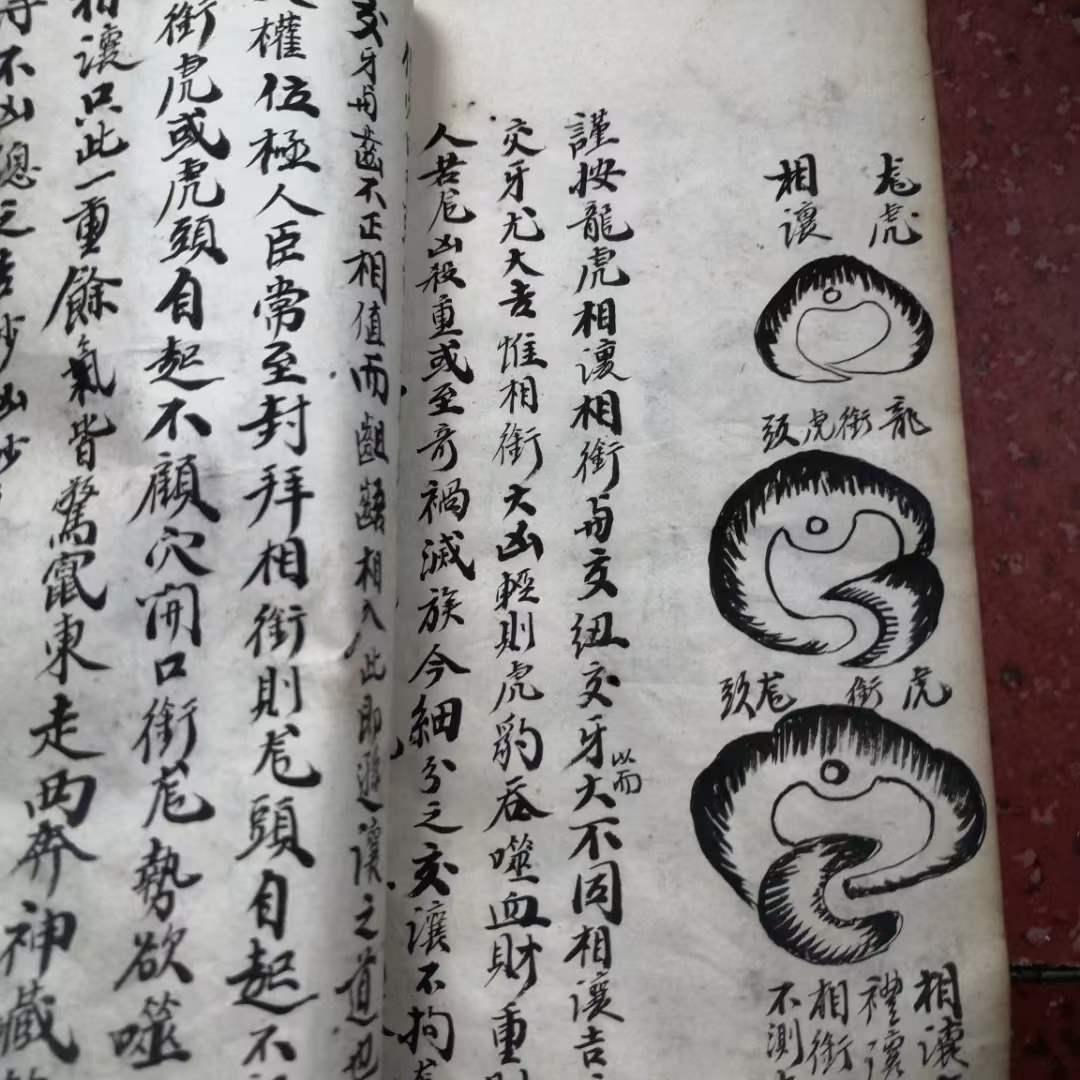 龙虎
相讓
龍銜虎頭
虎銜龙頭
相讓
禮讓
相銜
不測
謹按龍虎相讓相銜与交紐交牙大不同相讓吉
以而
交牙尤大吉惟相銜大凶輕則虎豹吞噬血財重則
人若龙凶殺重或至奇禍滅族今細分之交讓不拘
交牙与齒不正相值而齟齬相入此即遜讓之道也
權位極人臣常至封拜相銜則龙頭自起不
銜虎或虎頭自起不顧穴開口銜龙勢欲噬
相讓只此一重餘氣皆驚竄東走西奔神藏
不凶總之吉砂凶砂